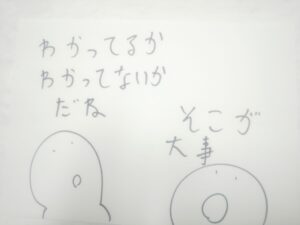 わかってるか
わかってないか
だね
そこが
大事